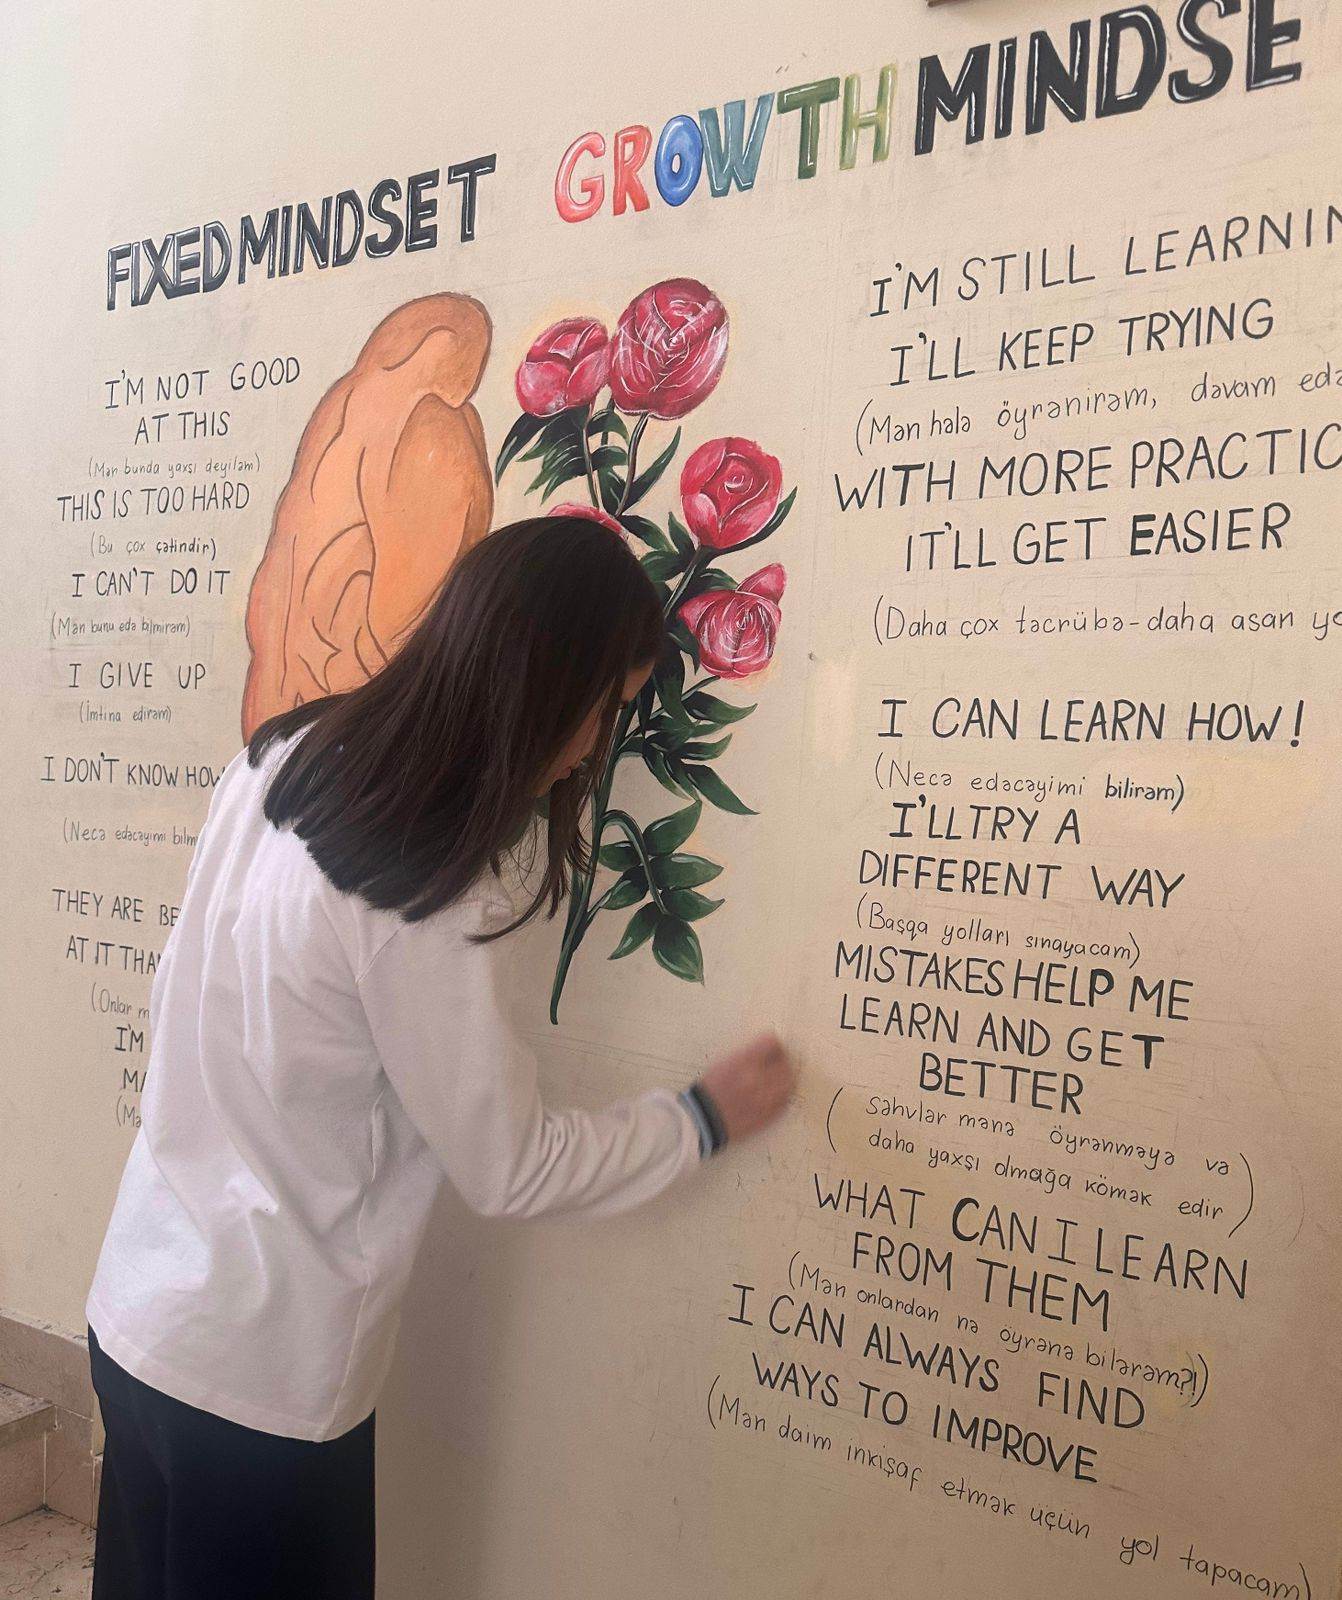 FIXED MINDSET
GROWTH MINDSE
I'M NOT GOOD
AT THIS
(Mən bunda yaxşı deyiləm)
THIS IS TOO HARD
(Bu çox çətindir)
I CAN'T DO IT
(Mən bunu edə bilmirəm)
I GIVE UP
(İmtina edirəm)
I DON'T KNOW HOW
(Necə edəcəyimi bilm
THEY ARE BE
AT IT THA
(Onlar m
I'M
MA
(Mə
I'M STILL LEARNIN
I'LL KEEP TRYING
(Mən hələ öyrənirəm, davam edə
WITH MORE PRACTIC
IT'LL GET EASIER
(Daha çox təcrübə-daha asan yo
I CAN LEARN HOW!
(Necə edəcəyimi bilirəm)
I'LL TRY A
DIFFERENT WAY
(Başqa yolları sınayacam)
MISTAKES HELP ME
LEARN AND GET
BETTER
(səhvlər mənə öyrənməyə və
daha yaxşı olmağa kömək edir)
WHAT CAN I LEARN
FROM THEM
(Mən onlardan nə öyrənə bilərəm?!)
I CAN ALWAYS FIND
WAYS TO IMPROVE
(Mən daim inkişaf etmək üçün yol tapacam)